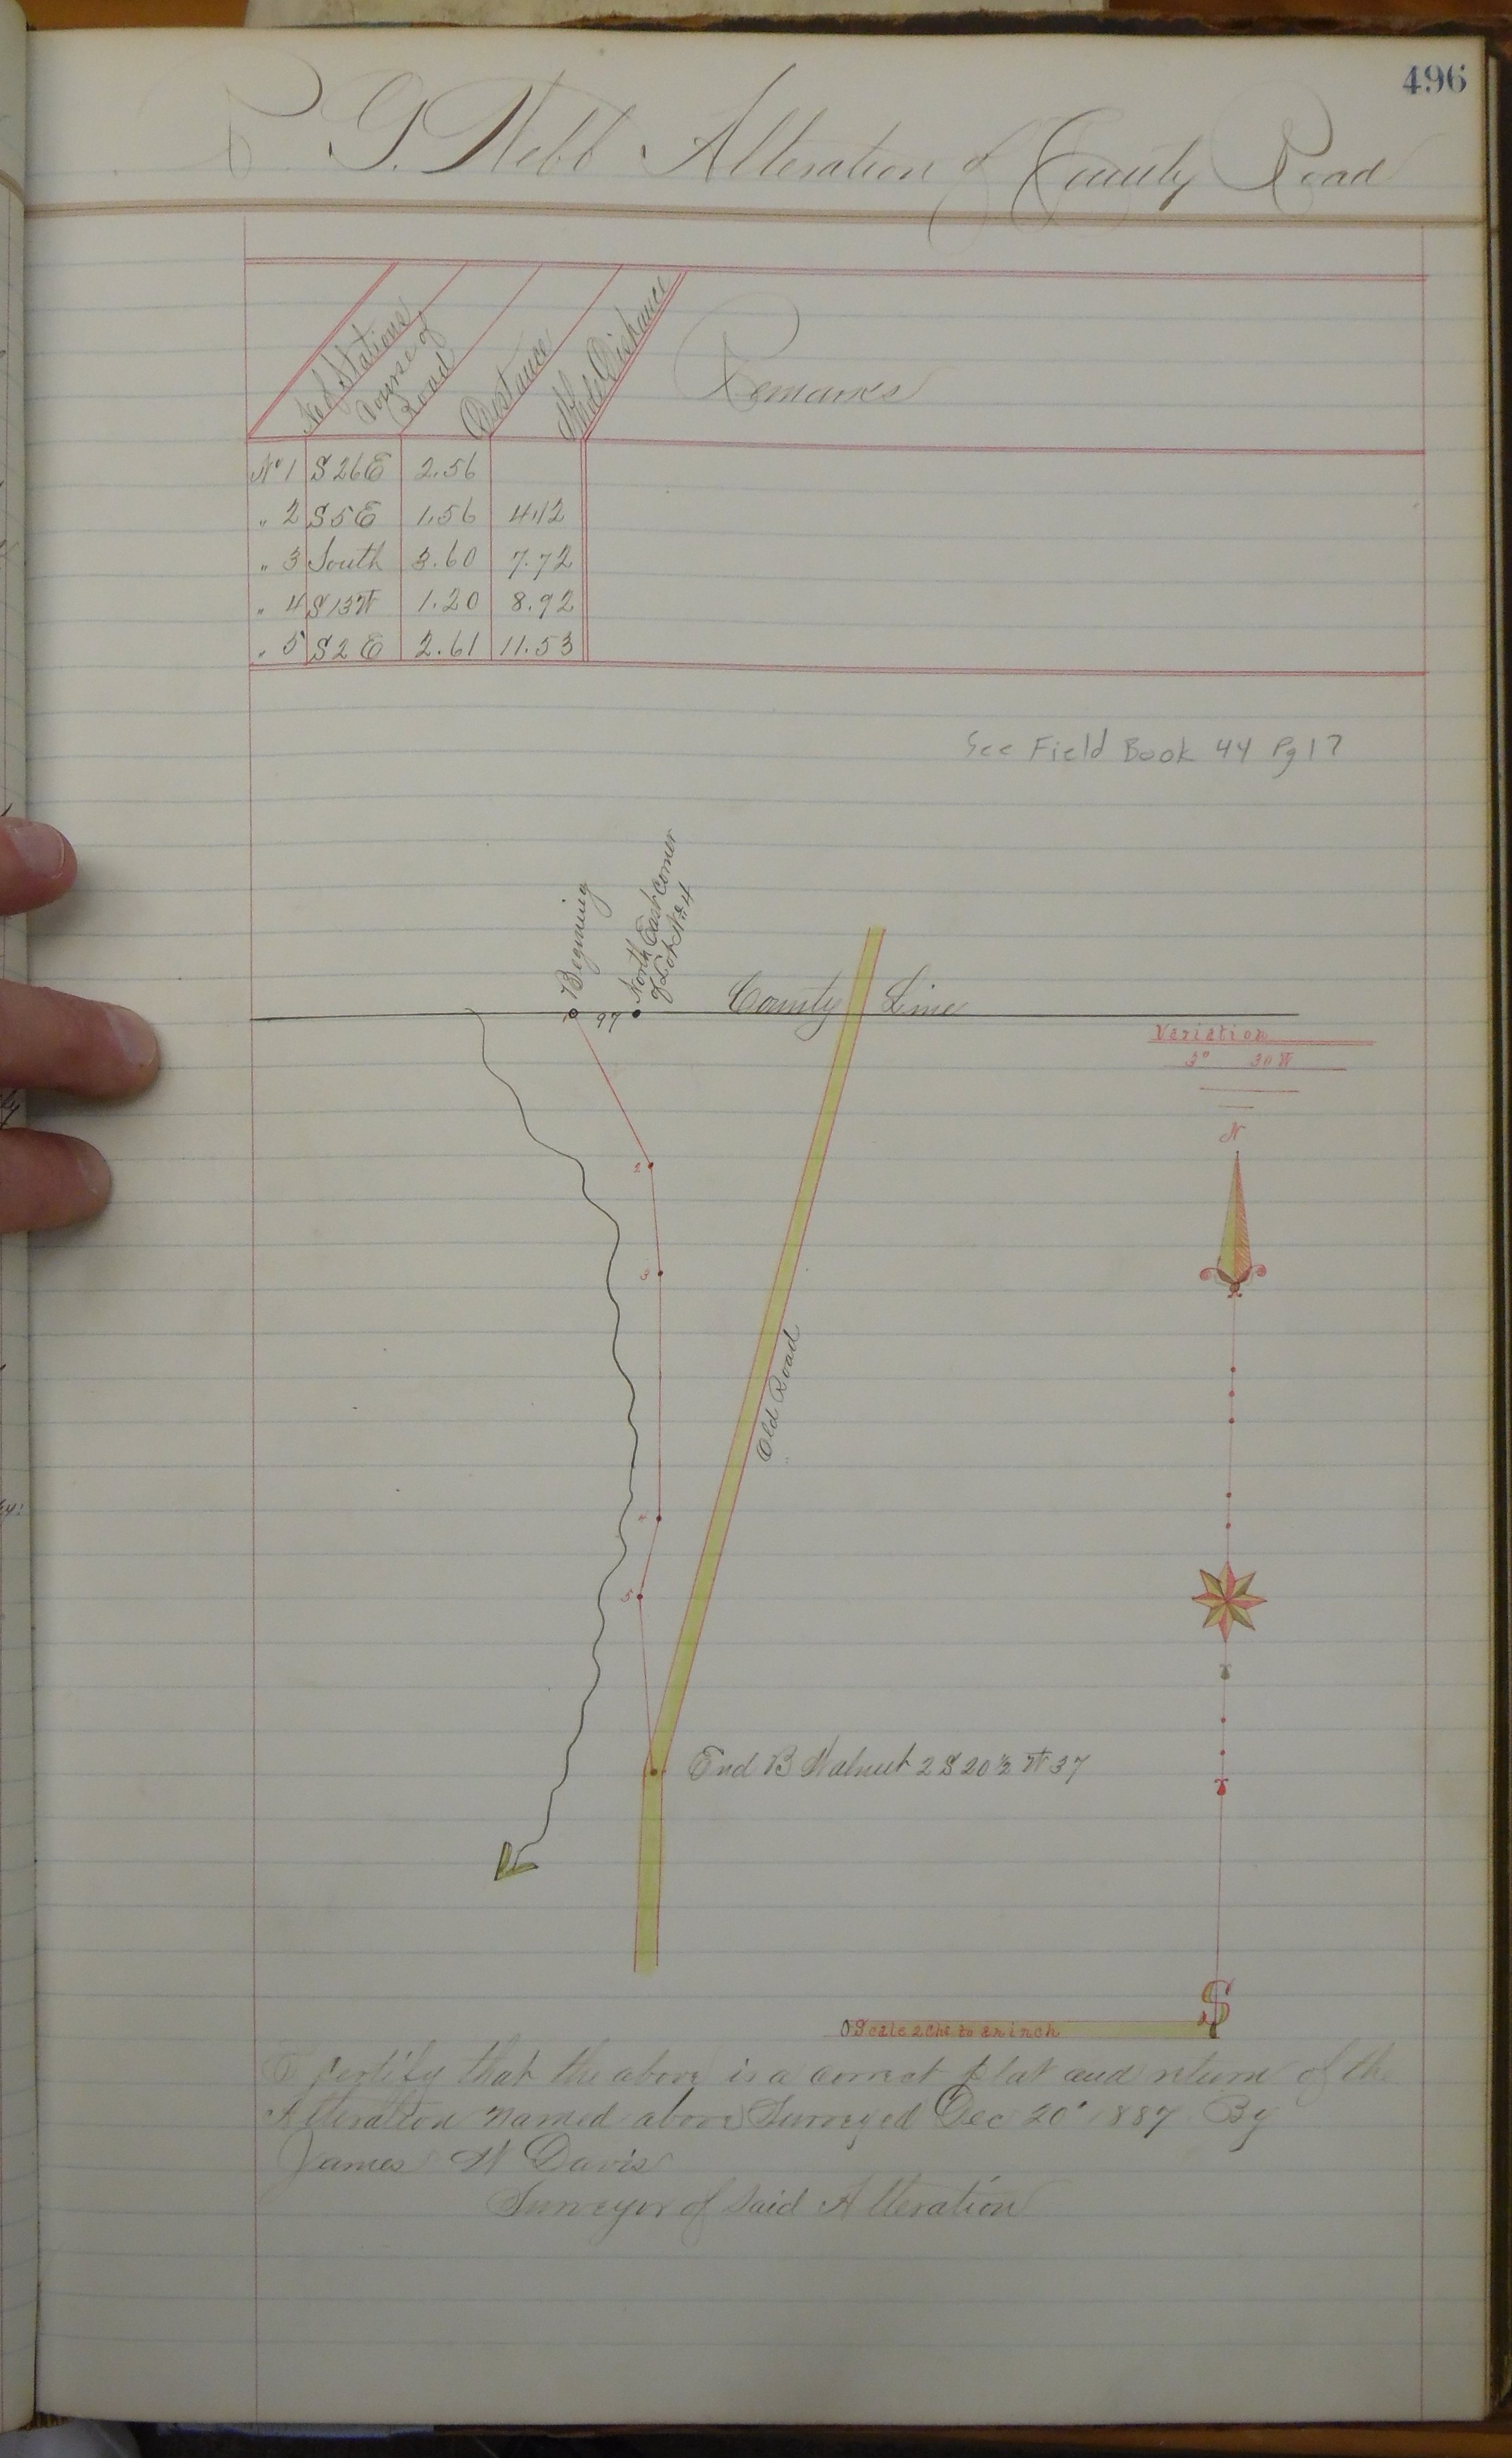 496
G. Webb Alteration of County Road
No of Stations
Course of Road
Distance
Whole Distance
Remarks
No 1 S 26 E 2.56
" 2 S 5 E 1.56 4.12
" 3 South 3.60 7.72
" 4 S 13 W 1.20 8.92
" 5 S 2 E 2.61 11.53
See Field Book 44 Pg 17
Begining
North East corner
of Lot No 4
97
County Line
Variation
3° 30 W
N
2
3
Old Road
4
5
End B Walnut 2 S 20 1/2 W 37
S
0 Scale 2 Chs to an inch
I certify that the above is a correct plat and return of the
Alteration named above Surveyed Dec 20" 1887 By
James W Davis
Surveyor of said Alteration